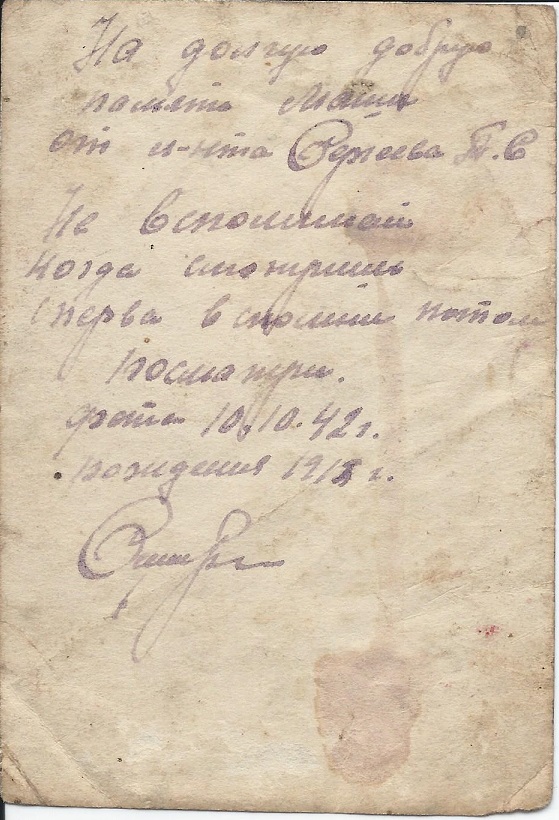 На долгую добрую
память Маши
от л-нта Сергеева П.С
Не вспоминай
когда смотришь
сперва вспомни потом
посмотри.
фото 10.10.42 г.
рождения г.